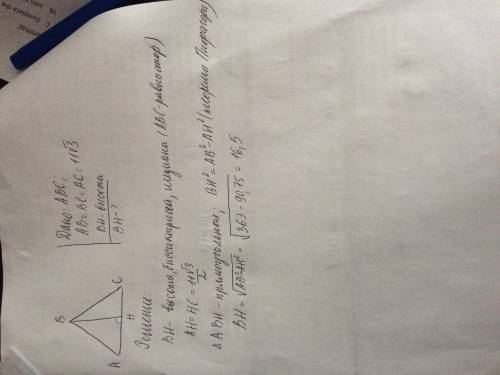 B
A
H
C
Дано: ABC;
AB = BC = AC = 11√3
BH - высота
BH - ?
Решение:
BH - высота, биссектриса, медиана (ABC - равностор)
AH = HC = 11√3/2
△ABH - прямоугольный; BH² = AB² - AH² (теорема Пифагора)
BH = √AB²-AH² = √363 - 90,75 = 16,5